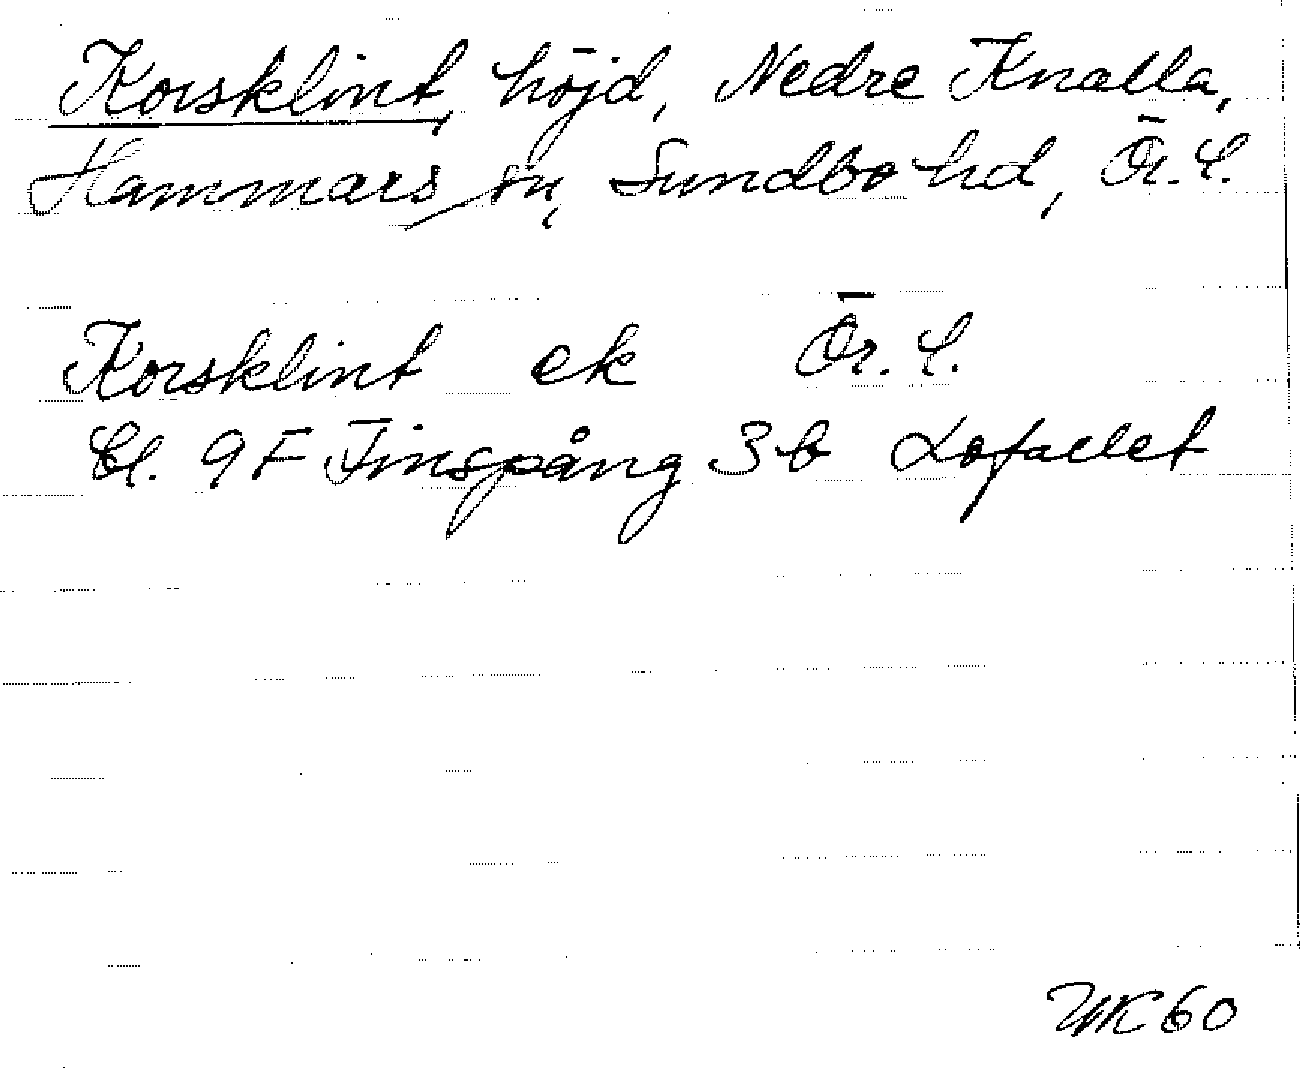 Korsklint, höjd, Nedre Knalla,
Hammars sn, Sundbo hd, Ör. L.
Korsklint ek Ör. L.
Bl. 9F Finspång 3b Lofallet
60